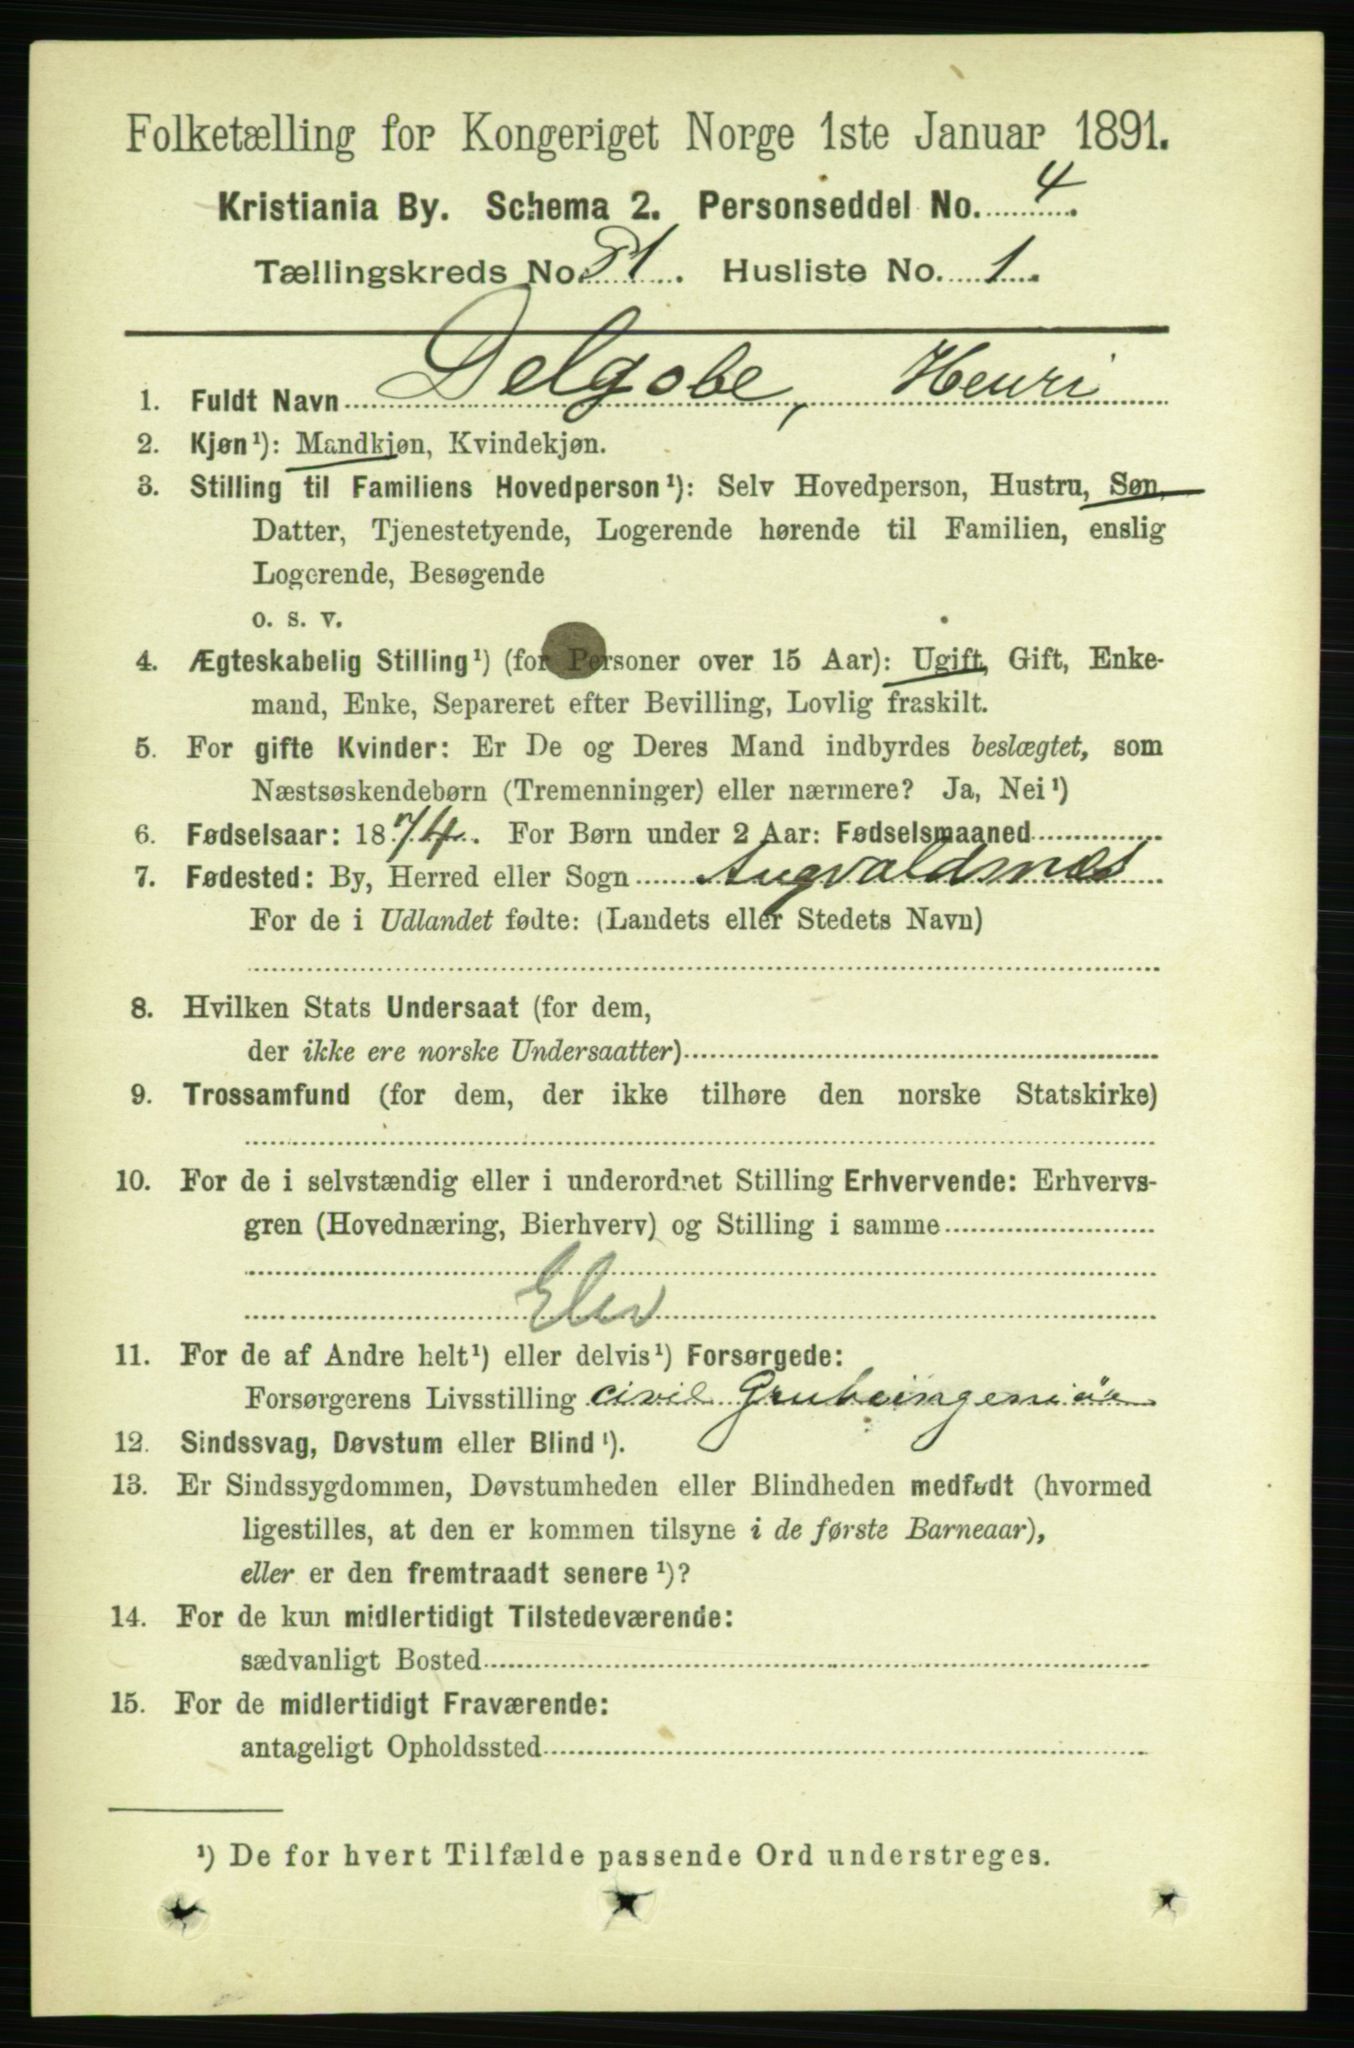 Folketælling for Kongeriget Norge 1ste Januar 1891.
Kristiania By. Schema 2. Personseddel No. 4.
Tællingskreds No. 81. Husliste No. 1.
1. Fuldt Navn Delgobe, Henri
2. Kjøn¹): Mandkjøn, Kvindekjøn.
3. Stilling til Familiens Hovedperson¹): Selv Hovedperson, Hustru, Søn,
Datter, Tjenestetyende, Logerende hørende til Familien, enslig
Logerende, Besøgende
o. s. v.
4. Ægteskabelig Stilling¹) (for Personer over 15 Aar): Ugift, Gift, Enke-
mand, Enke, Separeret efter Bevilling, Lovlig fraskilt.
5. For gifte Kvinder: Er De og Deres Mand indbyrdes beslægtet, som
Næstsøskendebørn (Tremenninger) eller nærmere? Ja, Nei¹)
6. Fødselsaar: 1874. For Børn under 2 Aar: Fødselsmaaned
7. Fødested: By, Herred eller Sogn Augvaldsnæs
For de i Udlandet fødte: (Landets eller Stedets Navn)
8. Hvilken Stats Undersaat (for dem,
der ikke ere norske Undersaatter)
9. Trossamfund (for dem, der ikke tilhøre den norske Statskirke)
10. For de i selvstændig eller i underordnet Stilling Erhvervende: Erhvervs-
gren (Hovednæring, Bierhverv) og Stilling i samme
Elev
11. For de af Andre helt¹) eller delvis¹) Forsørgede:
Forsørgerens Livsstilling civil Grubeingeniör
12. Sindssvag, Døvstum eller Blind¹).
13. Er Sindssygdommen, Døvstumheden eller Blindheden medfødt (hvormed
ligestilles, at den er kommen tilsyne i de første Barneaar),
eller er den fremtraadt senere¹)?
14. For de kun midlertidigt Tilstedeværende:
sædvanligt Bosted
15. For de midlertidigt Fraværende:
antageligt Opholdssted
¹) De for hvert Tilfælde passende Ord understreges.